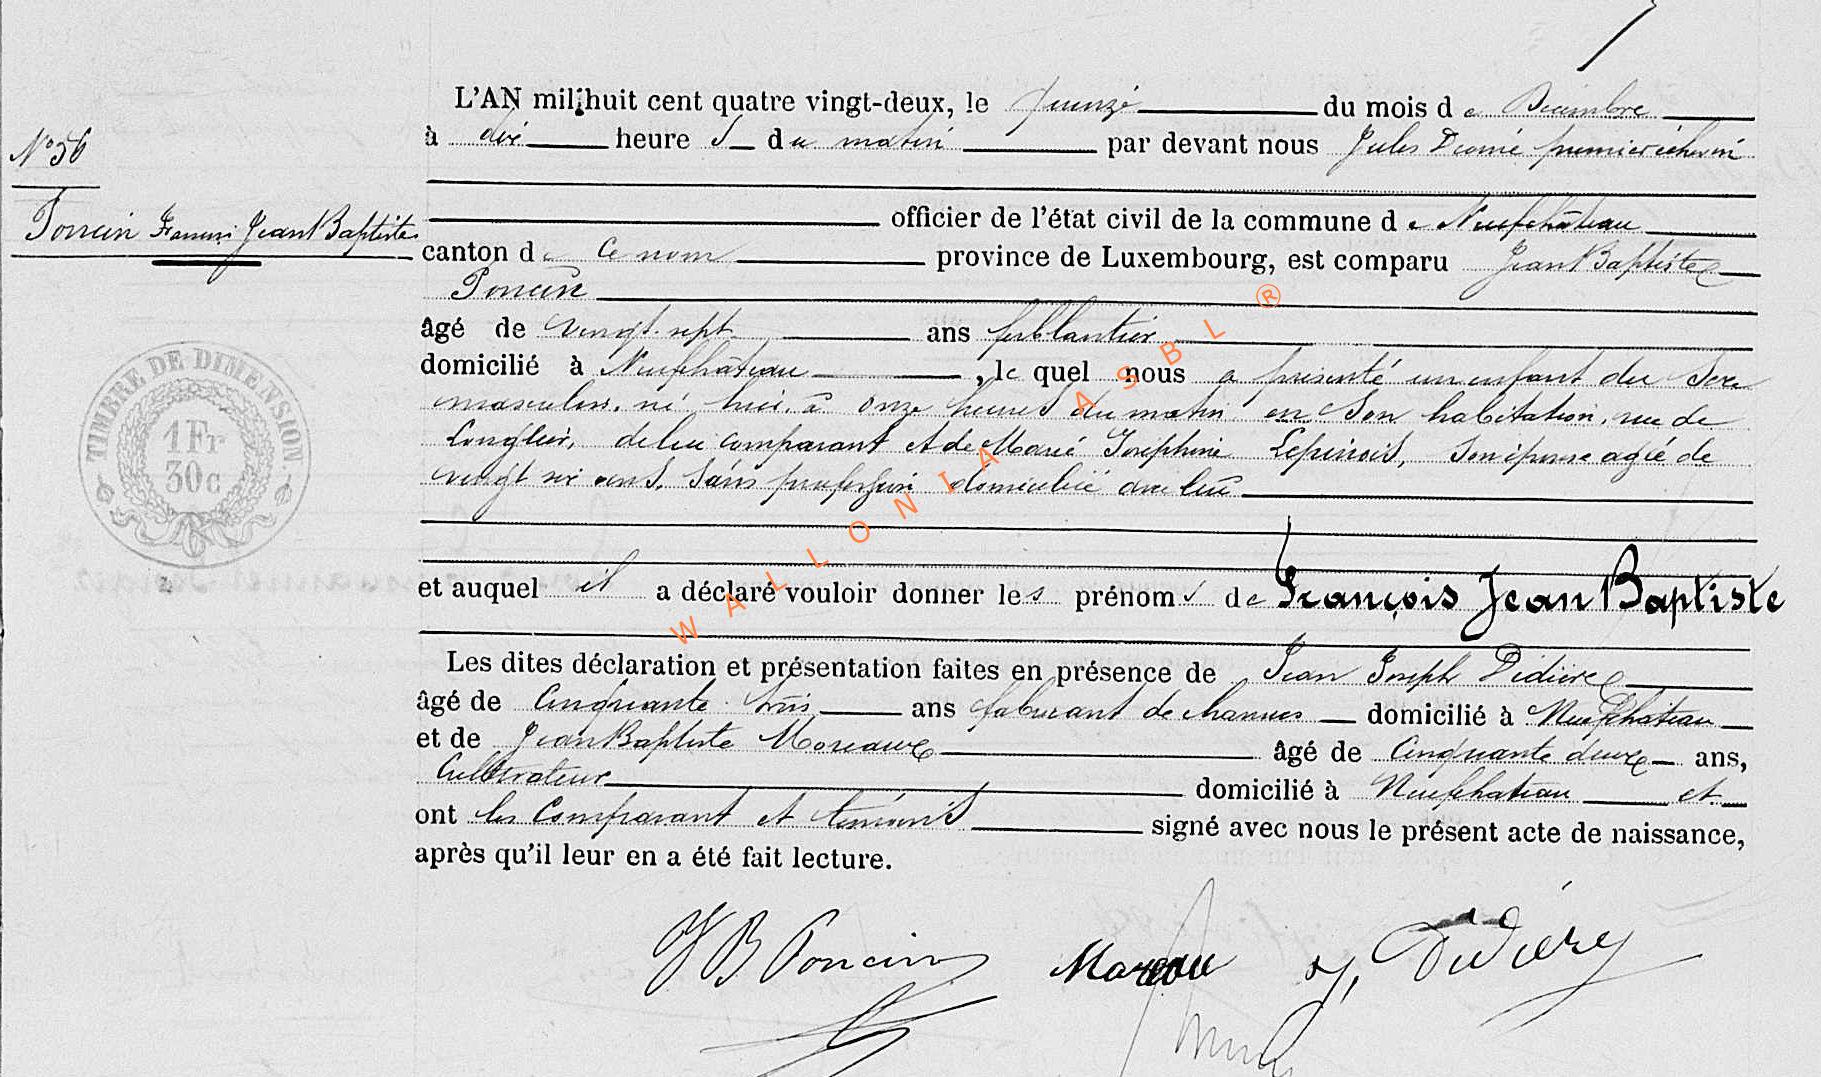 L'AN mil huit cent quatre vingt-deux, le quinze du mois de Décembre
à dix heures du matin par devant nous Jules premier échevin
N° 56
officier de l'état civil de la commune de Neufchâteau
Poncin François Jean Baptiste
canton de Ce nom province de Luxembourg, est comparu Jean Baptiste
Poncin
âgé de vingt-sept ans ferblantier
domicilié à Neufchâteau, le quel nous a présenté un enfant du Sexe
masculin, né hier, à onze heures du matin en Son habitation, rue de
Longlier, de lui comparant et de Marie Joséphine Lepinois, Son épouse agée de
vingt six ans, Sans profession domiciliée avec lui
et auquel il a déclaré vouloir donner les prénoms de François Jean Baptiste
Les dites déclaration et présentation faites en présence de Jean Joseph Didier
âgé de Cinquante trois ans fabricant de domicilié à Neufchateau
et de Jean Baptiste Moreaux âgé de Cinquante deux ans,
Cultivateur domicilié à Neufchateau et
ont les Comparant et témoins signé avec nous le présent acte de naissance,
après qu'il leur en a été fait lecture.
JB Poncin
TIMBRE DE DIMENSION
1 Fr
30c
WALLONIA ASBL ®